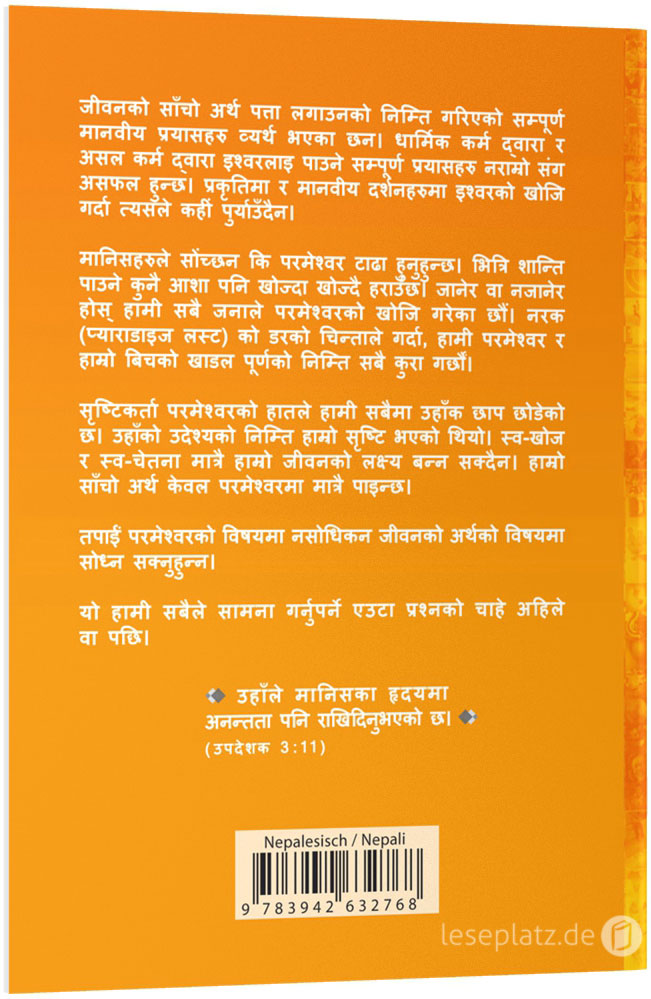 जीवनको साँचो अर्थ पत्ता लगाउनको निम्ति गरिएको सम्पूर्ण
मानवीय प्रयासहरु व्यर्थ भएका छन। धार्मिक कर्म द्वारा र
असल कर्म द्वारा इश्वरलाइ पाउने सम्पूर्ण प्रयासहरु नराम्रो संग
असफल हुन्छ। प्रकृतिमा र मानवीय दर्शनहरुमा इश्वरको खोजि
गर्दा त्यसले कहीं पुर्याउँदैन।
मानिसहरुले सोंच्छन कि परमेश्वर टाढा हुनुहुन्छ। भित्रि शान्ति
पाउने कुनै आशा पनि खोज्दा खोज्दै हराउँछ। जानेर वा नजानेर
होस् हामी सबै जनाले परमेश्वरको खोजि गरेका छौं। नरक
(प्याराडाइज लस्ट) को डरको चिन्ताले गर्दा, हामी परमेश्वर र
हाम्रो बिचको खाडल पूर्णको निम्ति सबै कुरा गर्छौं।
सृष्टिकर्ता परमेश्वरको हातले हामी सबैमा उहाँक छाप छोडेको
छ। उहाँको उदेश्यको निम्ति हाम्रो सृष्टि भएको थियो। स्व-खोज
र स्व-चेतना मात्रै हाम्रो जीवनको लक्ष्य बन्न सक्दैन। हाम्रो
साँचो अर्थ केवल परमेश्वरमा मात्रै पाइन्छ।
तपाईं परमेश्वरको विषयमा नसोधिकन जीवनको अर्थको विषयमा
सोध्न सक्नुहुन्न।
यो हामी सबैले सामना गर्नुपर्ने एउटा प्रश्नको चाहे अहिले
वा पछि।
उहाँले मानिसका हृदयमा
अनन्तता पनि राखिदिनुभएको छ।
(उपदेशक 3:11)
Nepalesisch / Nepali
9 783942 632768
leseplatz.de